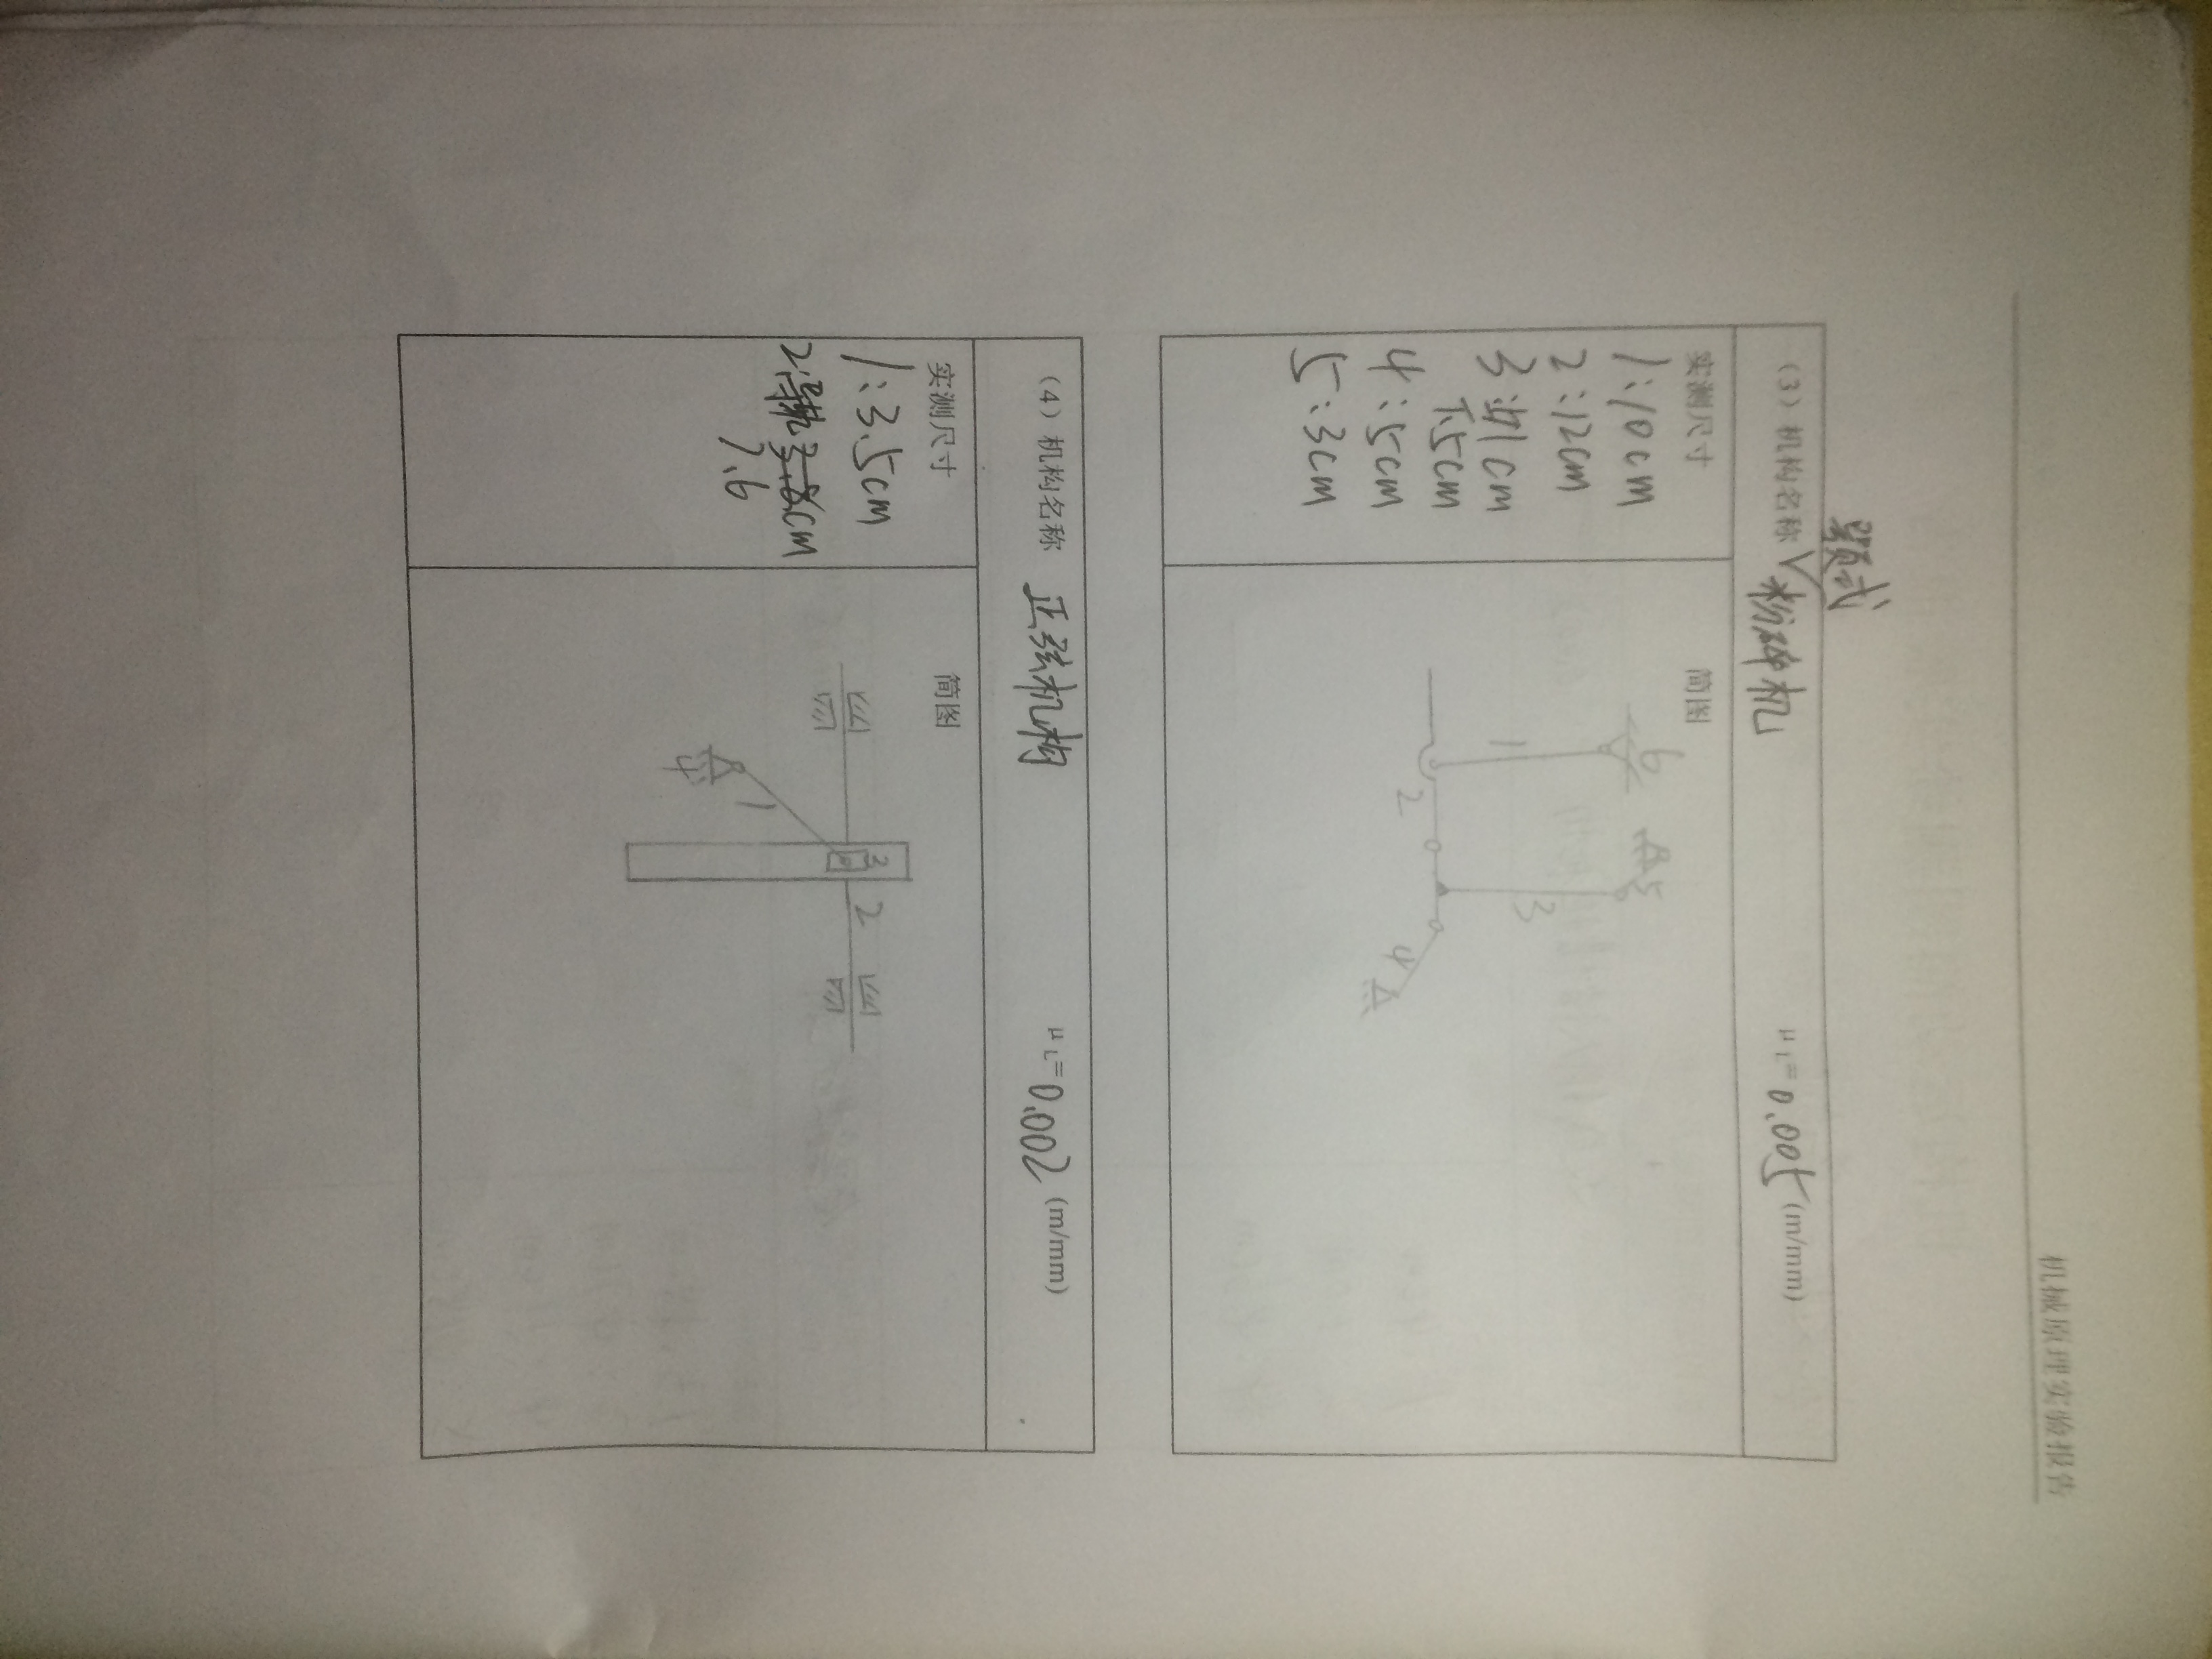 机械原理实验报告
颚式
（3）机构名称 粉碎机 μL=0.005(m/mm)
实测尺寸
1:10cm
2:12cm
3:
5cm
4:5cm
5:3cm
简图
6
5
1
3
2
4
（4）机构名称 正弦机构 μL=0.002(m/mm)
实测尺寸
1:3.5cm
2: cm
7.6
简图
3
2
1
4